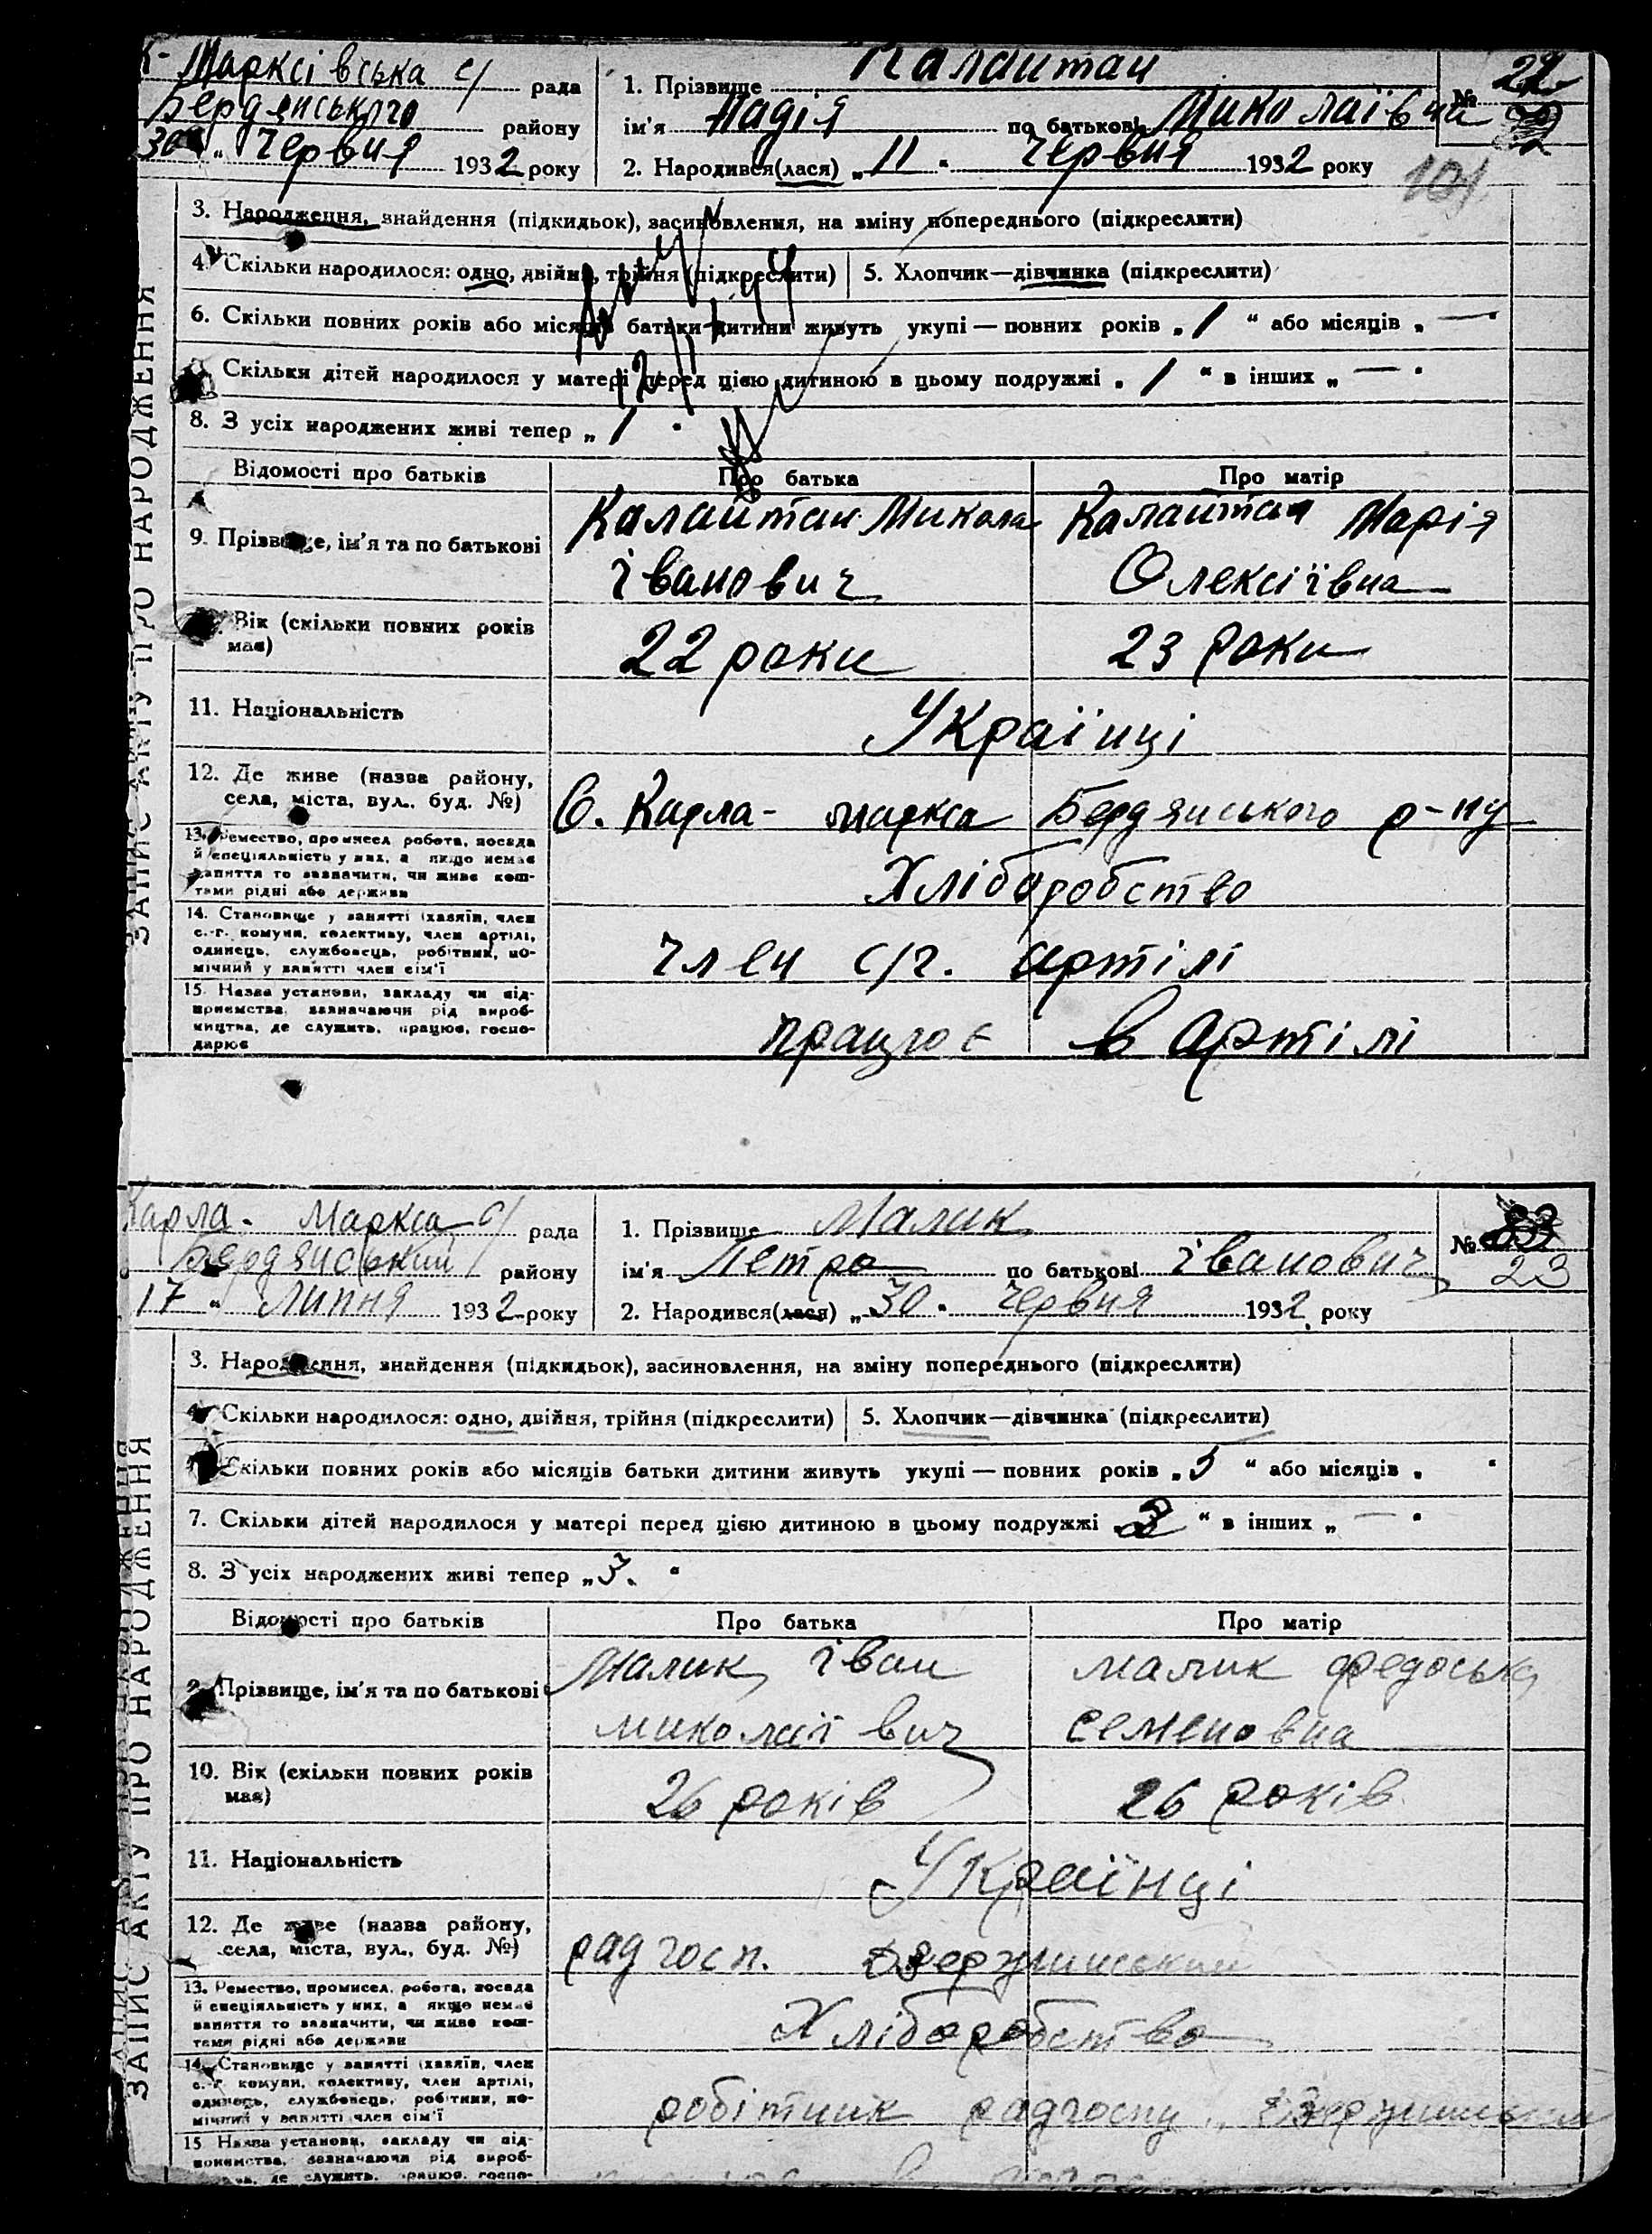 К- Марксівська с/ рада
Бердянського району
30 " Червня 1932 року
1. Прізвище Калаштан
ім'я Надія по батькові Миколаївна
2. Народився(лася) „ 11 " Червня 1932 року
№ 22
101
3. Народження, знайдення (підкидьок), засиновлення, на зміну попереднього (підкреслити)
4. Скільки народилося: одно, двійня, трійня (підкреслити) 5. Хлопчик—дівчинка (підкреслити)
6. Скільки повних років або місяців батьки дитини живуть укупі — повних років „ 1 " або місяців „ — "
7. Скільки дітей народилося у матері перед цією дитиною в цьому подружжі „ 1 " в інших „ — "
8. З усіх народжених живі тепер „ 1 "
Відомості про батьків Про батька Про матір
9. Прізвище, ім'я та по батькові
Калаштан Микола Калаштан Марія
Іванович Олексіївна
10. Вік (скільки повних років має) 22 роки 23 роки
11. Національність Українці
12. Де живе (назва району, села, міста, вул., буд. №) С. Карла- маркса Бердянського р-ну
13. Ремество, промисел, робота, посада й спеціяльність у них, а якщо немає заняття то зазначити, чи живе коштами рідні або держави
Хліборобство
14. Становище у занятті (хазяїн, член с.-г. комуни, колективу, член артілі, одинець, службовець, робітник, помічний у занятті член сім'ї
член с/г. артілі
15. Назва установи, закладу чи підприємства, зазначаючи рід виробництва, де служить, працює, господарює
працює в артілі
ЗАПИС АКТУ ПРО НАРОДЖЕННЯ
Карла- Маркса с/ рада
Бердянський району
17 " Липня 1932 року
1. Прізвище Малик
ім'я Петро по батькові Іванович
2. Народився(лася) „ 30 " Червня 1932 року
№ 23
3. Народження, знайдення (підкидьок), засиновлення, на зміну попереднього (підкреслити)
4. Скільки народилося: одно, двійня, трійня (підкреслити) 5. Хлопчик—дівчинка (підкреслити)
6. Скільки повних років або місяців батьки дитини живуть укупі — повних років „ 5 " або місяців „ "
7. Скільки дітей народилося у матері перед цією дитиною в цьому подружжі „ " в інших „ — "
8. З усіх народжених живі тепер „ 3. "
Відомості про батьків Про батька Про матір
9. Прізвище, ім'я та по батькові
Малик Іван малик Федоська
миколаївич семеновна
10. Вік (скільки повних років має) 26 років 26 років
11. Національність Українці
12. Де живе (назва району, села, міста, вул., буд. №) радгосп. Дзержинський
13. Ремество, промисел, робота, посада й спеціяльність у них, а якщо немає заняття то зазначити, чи живе коштами рідні або держави
Хліборобство
14. Становище у занятті (хазяїн, член с.-г. комуни, колективу, член артілі, одинець, службовець, робітник, помічний у занятті член сім'ї
робітник радгоспу
15. Назва установи, закладу чи підприємства, зазначаючи рід виробництва, де служить, працює, госпо-
ЗАПИС АКТУ ПРО НАРОДЖЕННЯ